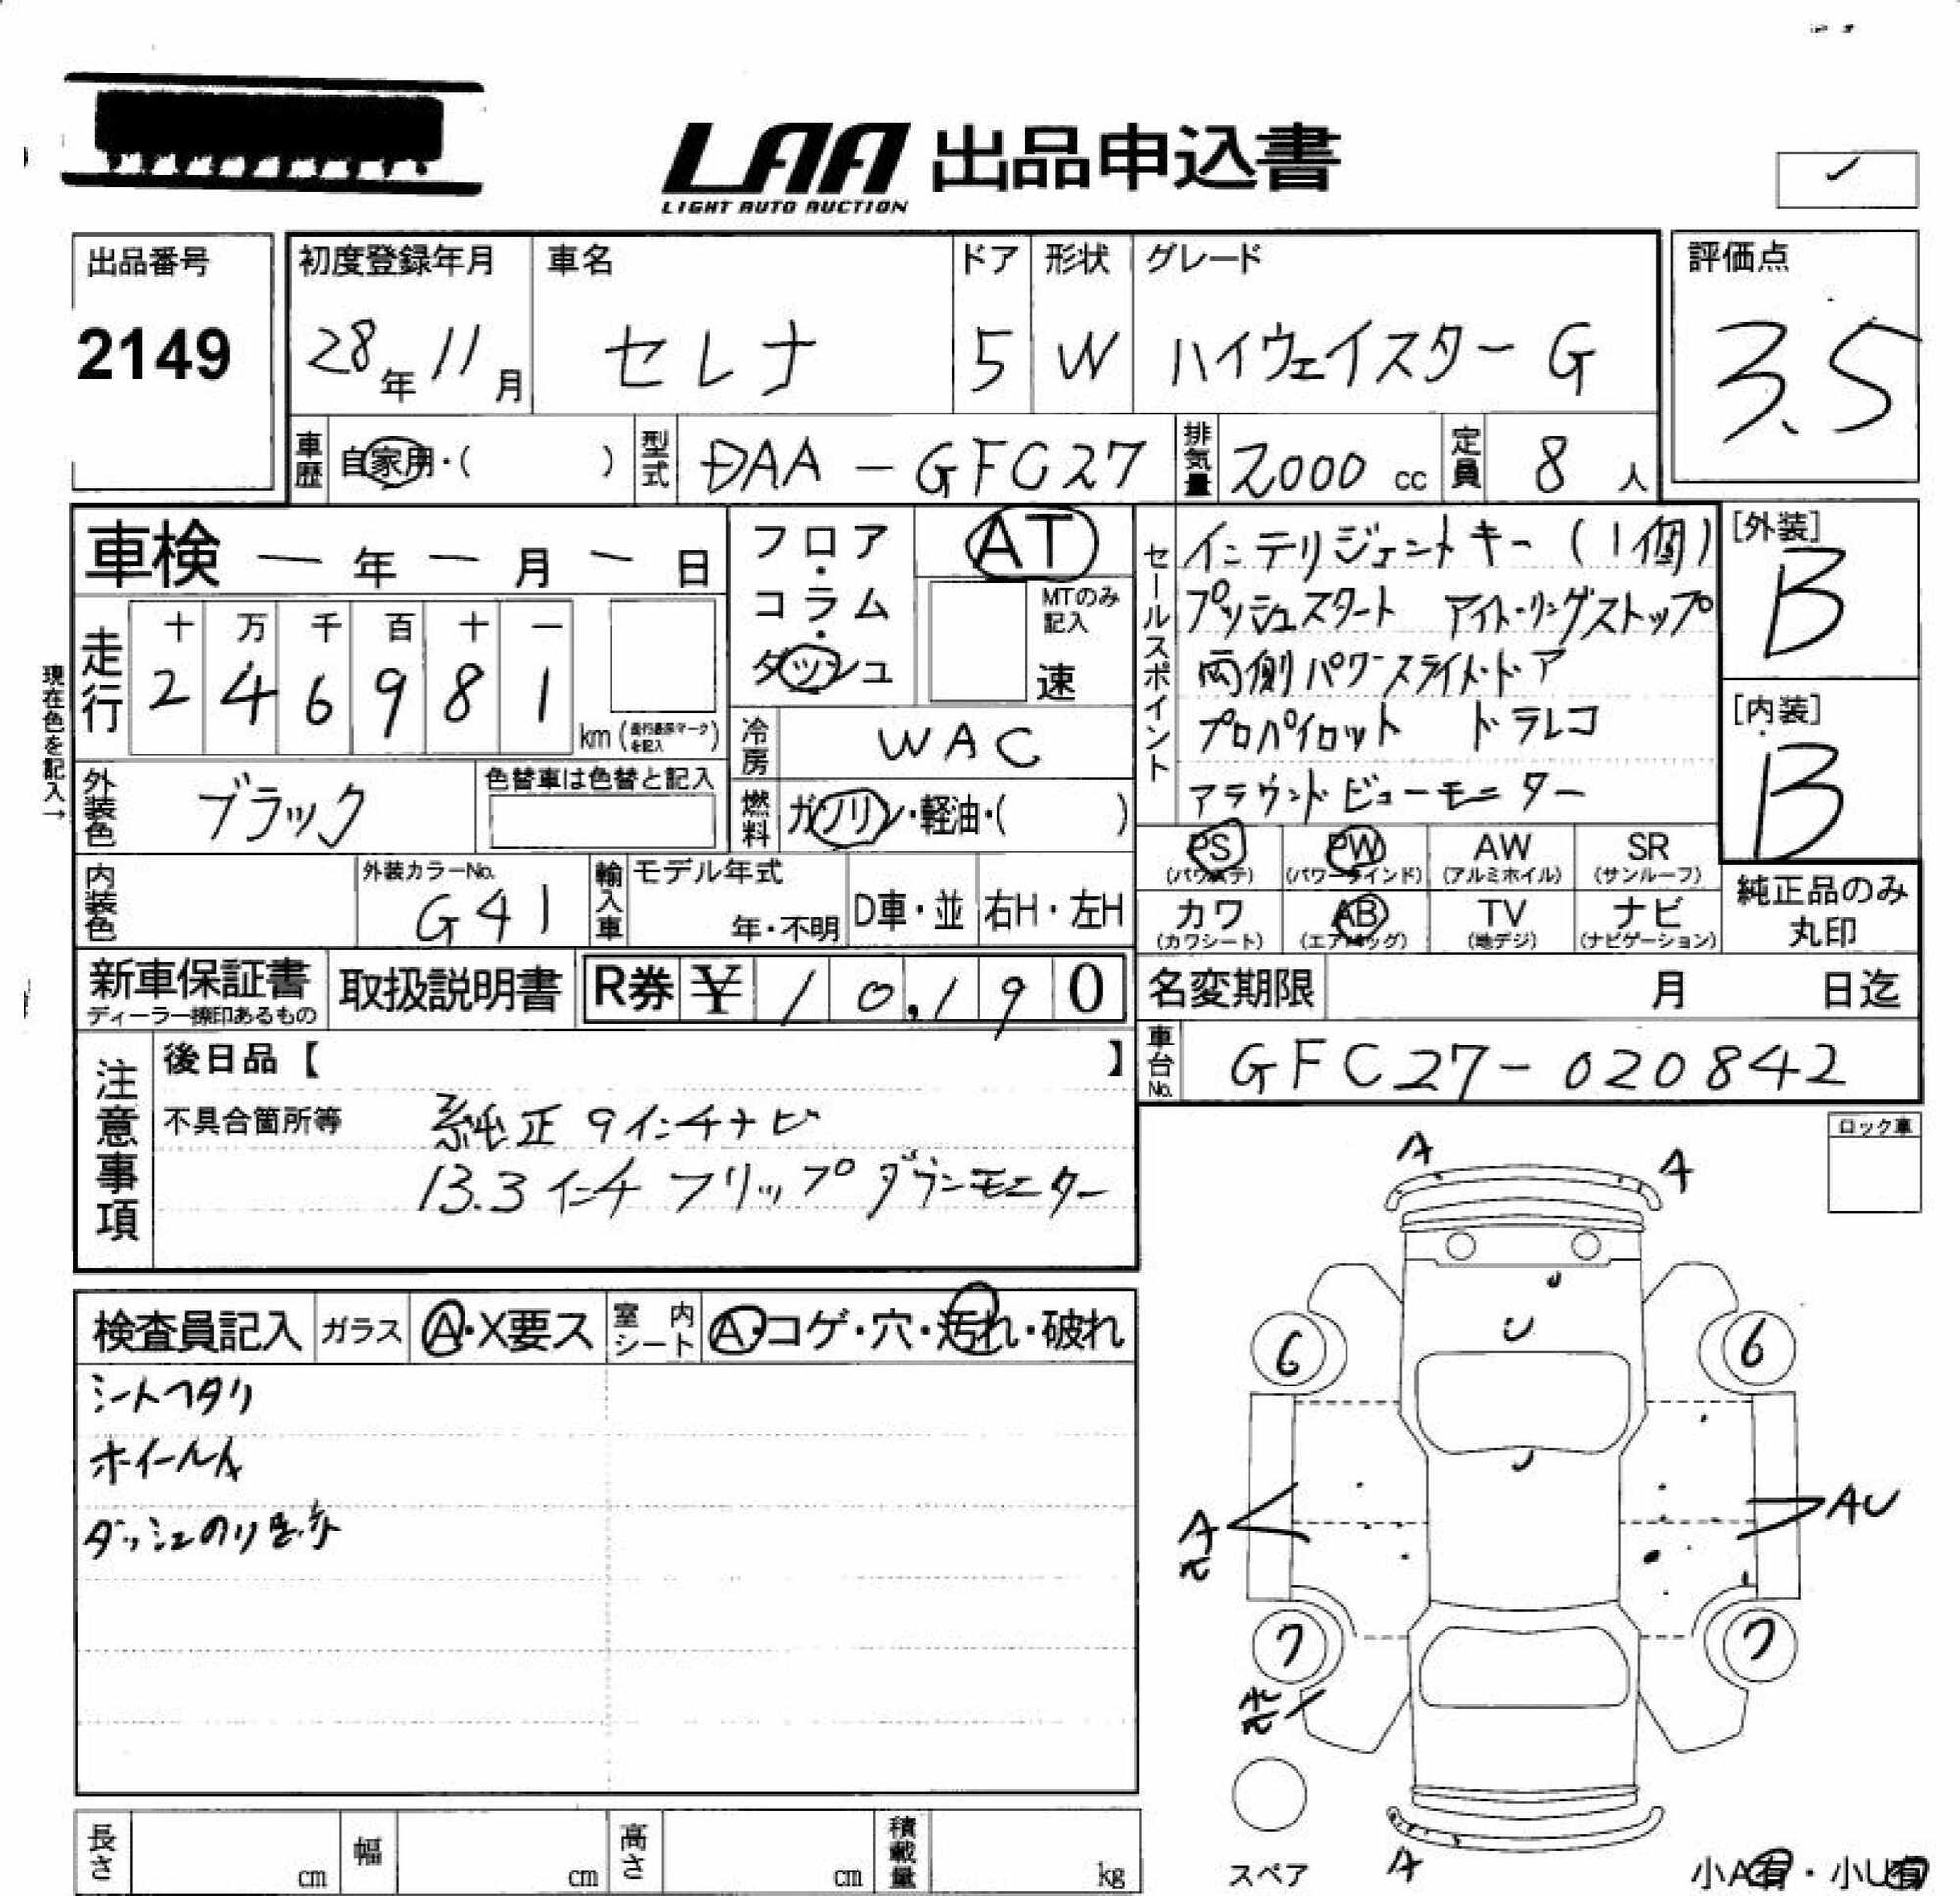 LAA 出品申込書
LIGHT AUTO AUCTION
出品番号
2149
初度登録年月 車名 ドア 形状 グレード
28年11月 セレナ 5 W ハイウェイスターG
評価点
3.5
車歴 自家用・( ) 型式 DAA-GFC27 排気量 2000 cc 定員 8 人
車検 ー年ー月ー日
現在色を記入→
走行 十 万 千 百 十 一
2 4 6 9 8 1 km (走行表示マークを記入)
フロア・コラム・ダッシュ
AT
MTのみ記入
速
冷房 WAC
燃料 ガソリン・軽油・( )
外装色 ブラック 色替車は色替と記入
内装色 外装カラーNo. G41
輸入車 モデル年式 年・不明 D車・並 右H・左H
セールスポイント
インテリジェントキー(1個)
プッシュスタート アイドリングストップ
両側パワースライドドア
プロパイロット ドラレコ
アラウンドビューモニター
[外装]
B
[内装]
B
PS (パワステ) PW (パワーウインド) AW (アルミホイル) SR (サンルーフ)
カワ (カワシート) AB (エアバッグ) TV (地デジ) ナビ (ナビゲーション)
純正品のみ丸印
新車保証書 ディーラー捺印あるもの 取扱説明書 R券 ¥ 10,190
名変期限 月 日迄
車台No. GFC27-020842
注意事項
後日品【 】
不具合箇所等 純正9インチナビ
13.3インチフリップダウンモニター
ロック車
検査員記入 ガラス A・X要ス 室内シート A・コゲ・穴・汚れ・破れ
シートヘタリ
ホイールA
ダッシュのり跡
A A
U
6 6
A AU
7 7
スペア
A
小A有・小U有
長さ cm 幅 cm 高さ cm 積載量 kg